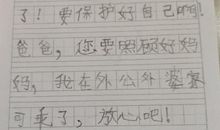 了！要保护好自己啊！
爸爸，您要照顾好妈
妈，我在外公外婆家
可乖了，放心吧！